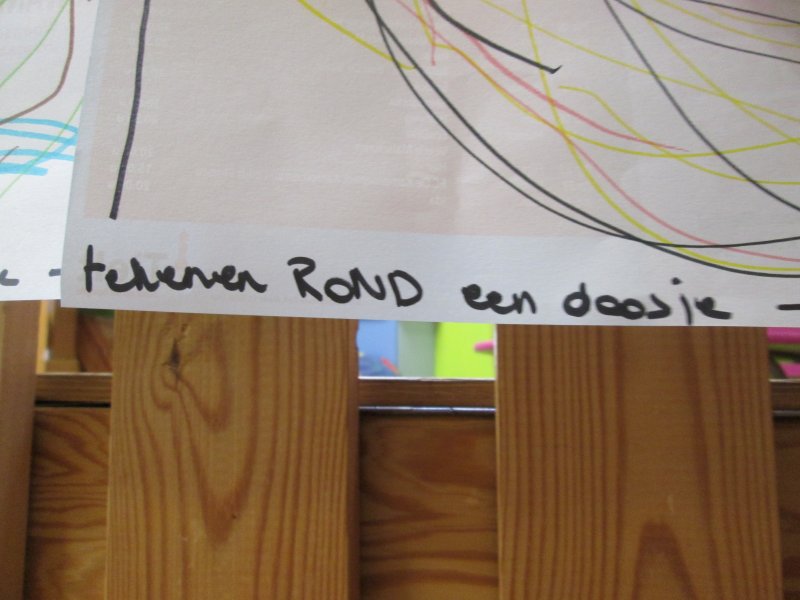 tekenen ROND een doosje -